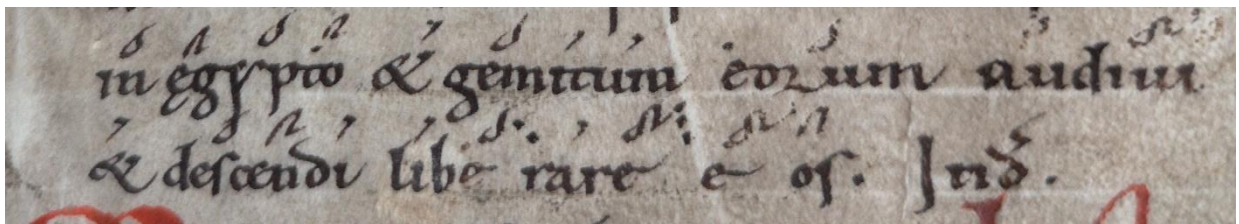 in ęgypto & gemitum eorum audiui
& descendi libe rare e os. Ind̄.